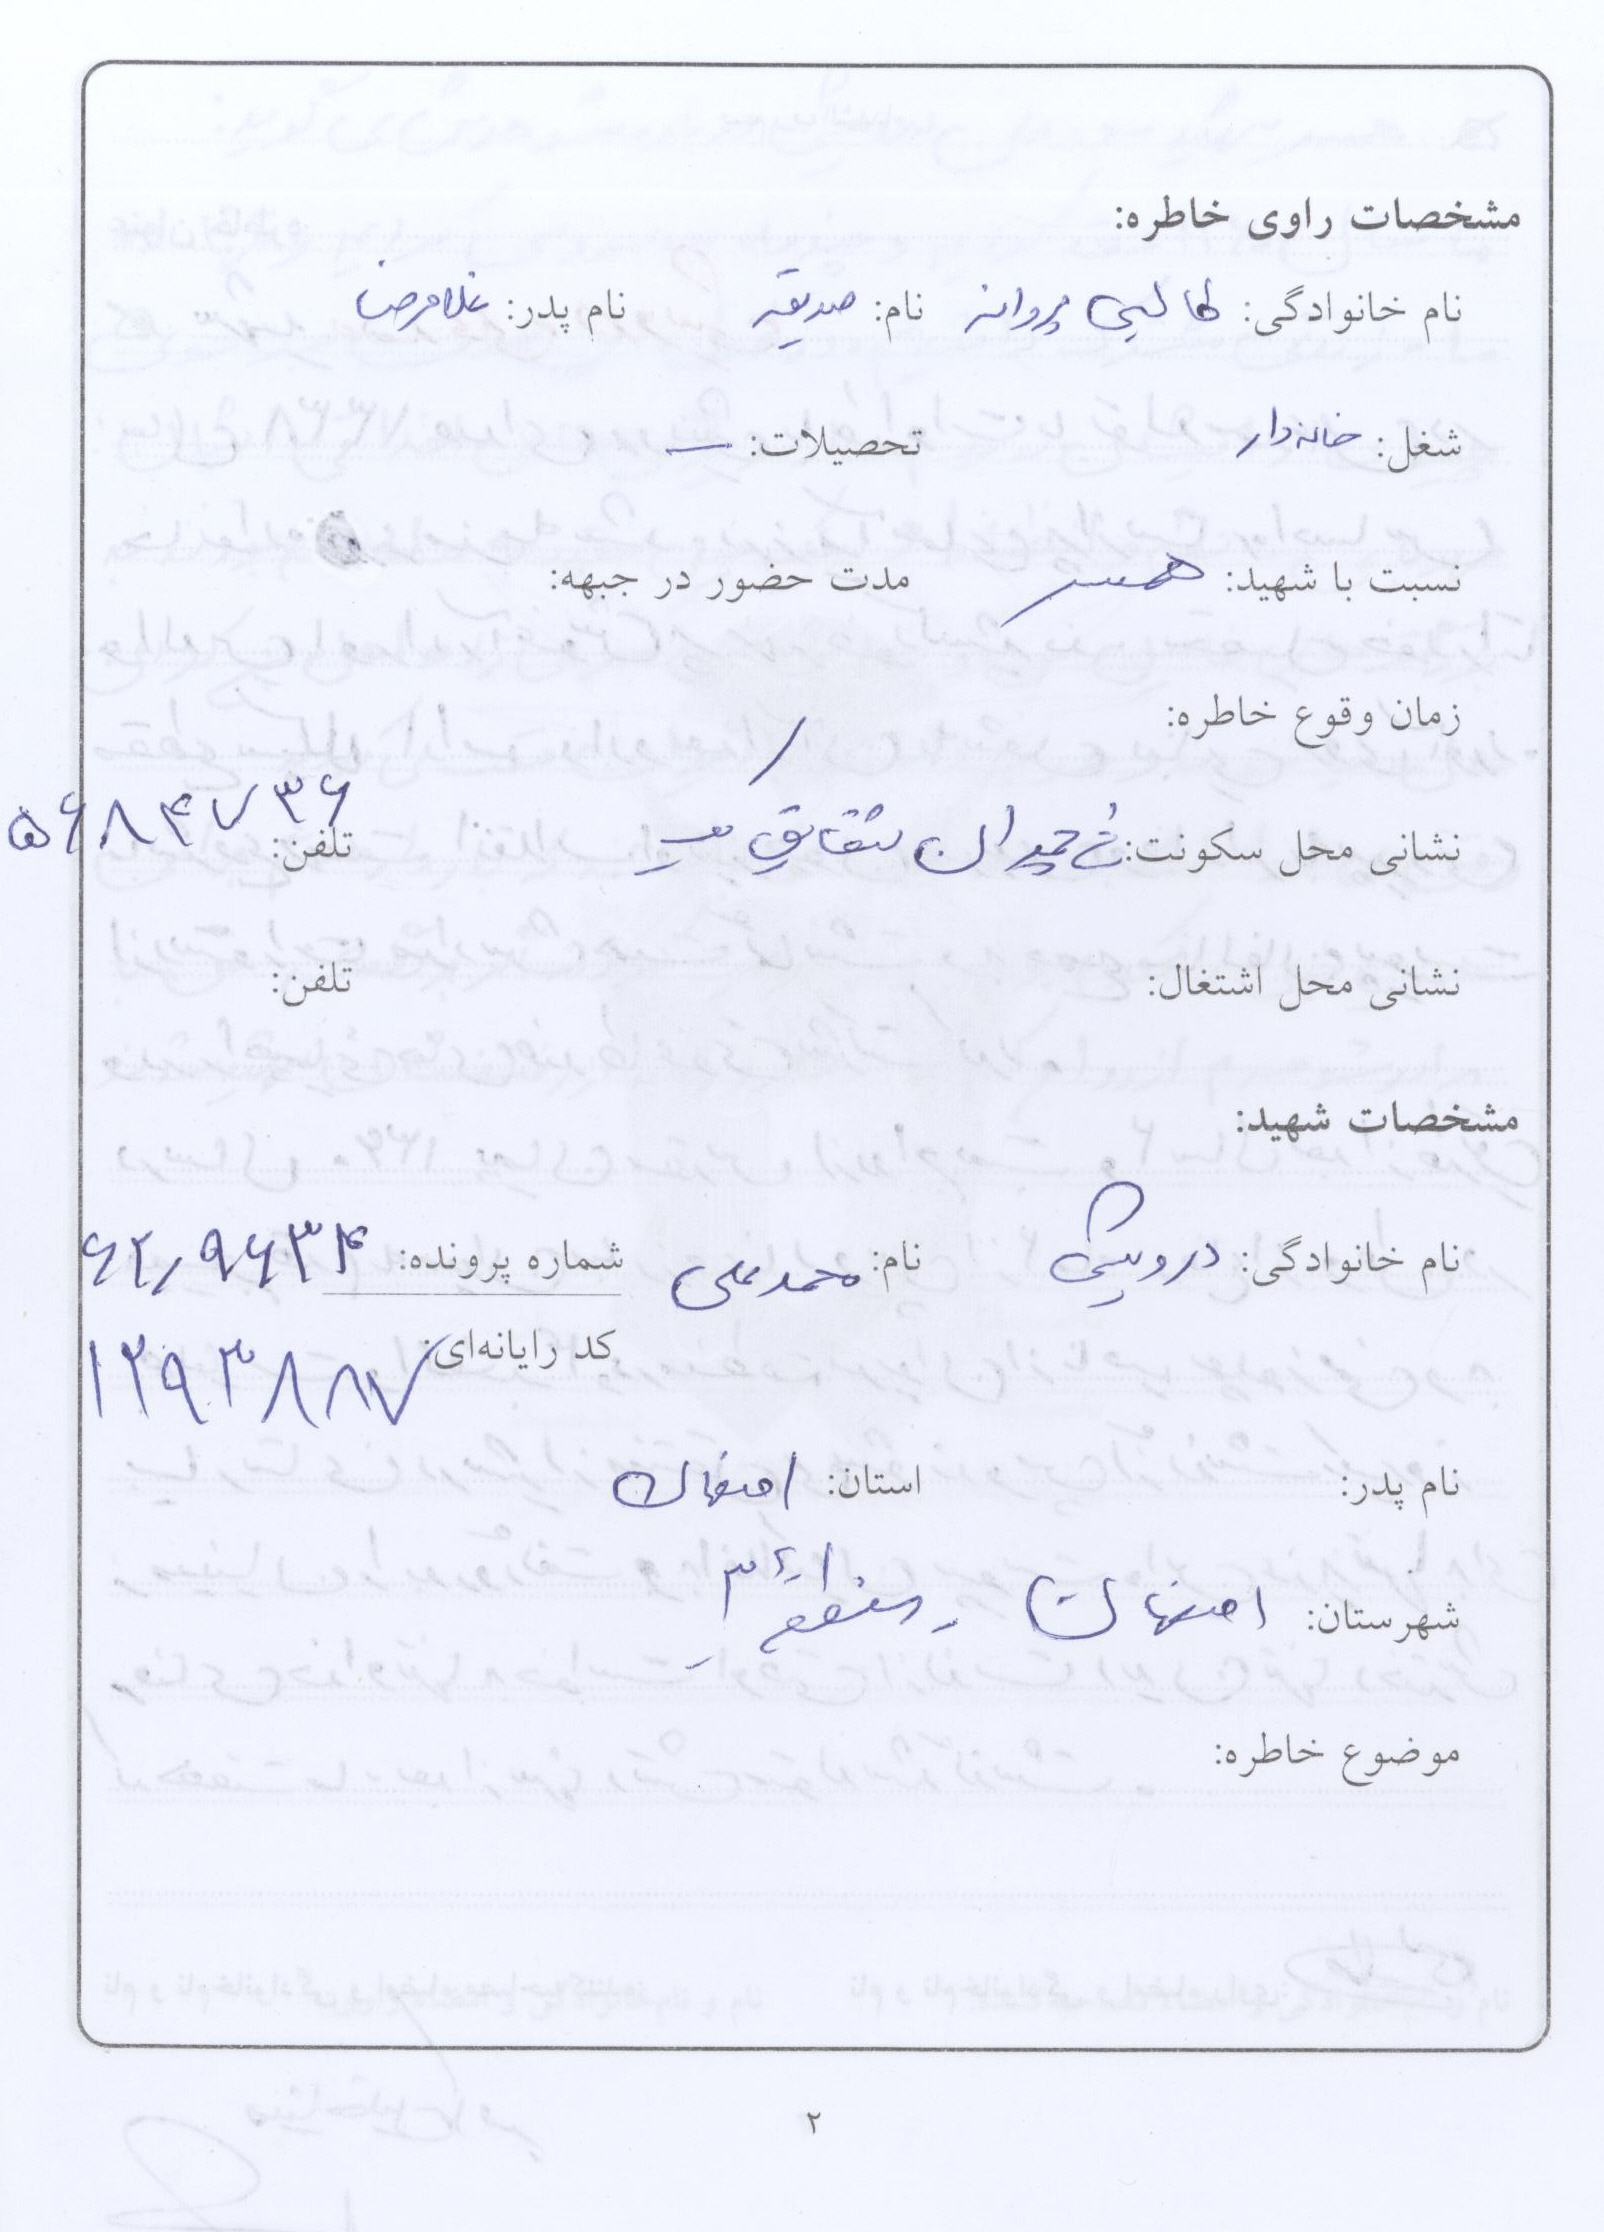 مشخصات راوی خاطره:
نام خانوادگی: طالبی پروانه نام: صدیقه نام پدر: غلامرضا
شغل: خانه‌دار تحصیلات: —
نسبت با شهید: همسر مدت حضور در جبهه:
زمان وقوع خاطره:
نشانی محل سکونت: خ چمران شقایق تلفن: ۵۶۸۴۷۳۶
نشانی محل اشتغال: تلفن:
مشخصات شهید:
نام خانوادگی: درویشی نام: محمدعلی شماره پرونده: ۶۲٫۹۶۳۴
کد رایانه‌ای: ۱۲۹۳۸۸۷
نام پدر: استان: اصفهان
شهرستان: اصفهان - منطقه ۳
موضوع خاطره:
۲